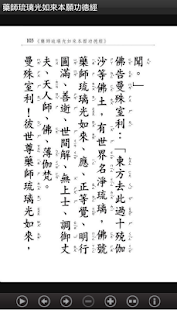 藥師琉璃光如來本願功德經
《藥師琉璃光如來本願功德經》
聞。」
佛告曼殊室利：「東方去此過十殑伽
沙等佛土，有世界名淨琉璃，佛號
藥師琉璃光如來、應、正等覺、明行
圓滿、善逝、世間解、無上士、調御丈
夫、天人師、佛、薄伽梵。
曼殊室利！彼世尊藥師琉璃光如來，